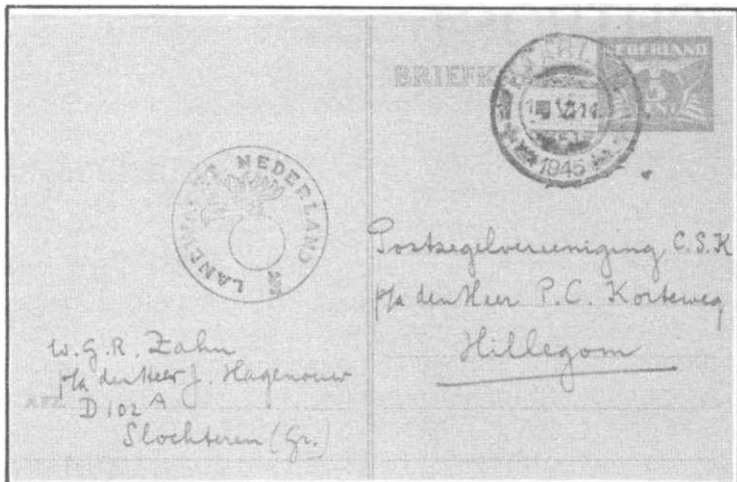 BRIEFK
NEDERLAND
5
CENT
HAARLEM
1945
LANDWACHT NEDERLAND
Postzegelvereeniging C.S.K
p/a den Heer P.C. Korteweg
Hillegom
W.G.R. Zahn
p/a den Heer J. Hagenouw
AFZ.
D 102 A
Slochteren (Gr.)